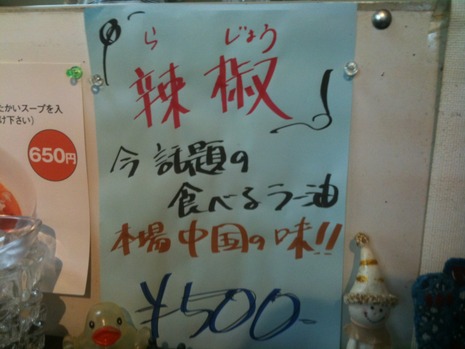 たかいスープを入
け下さい)
650円
ら じょう
「辣椒」
今話題の
食べるラー油
本場中国の味!!
¥500-